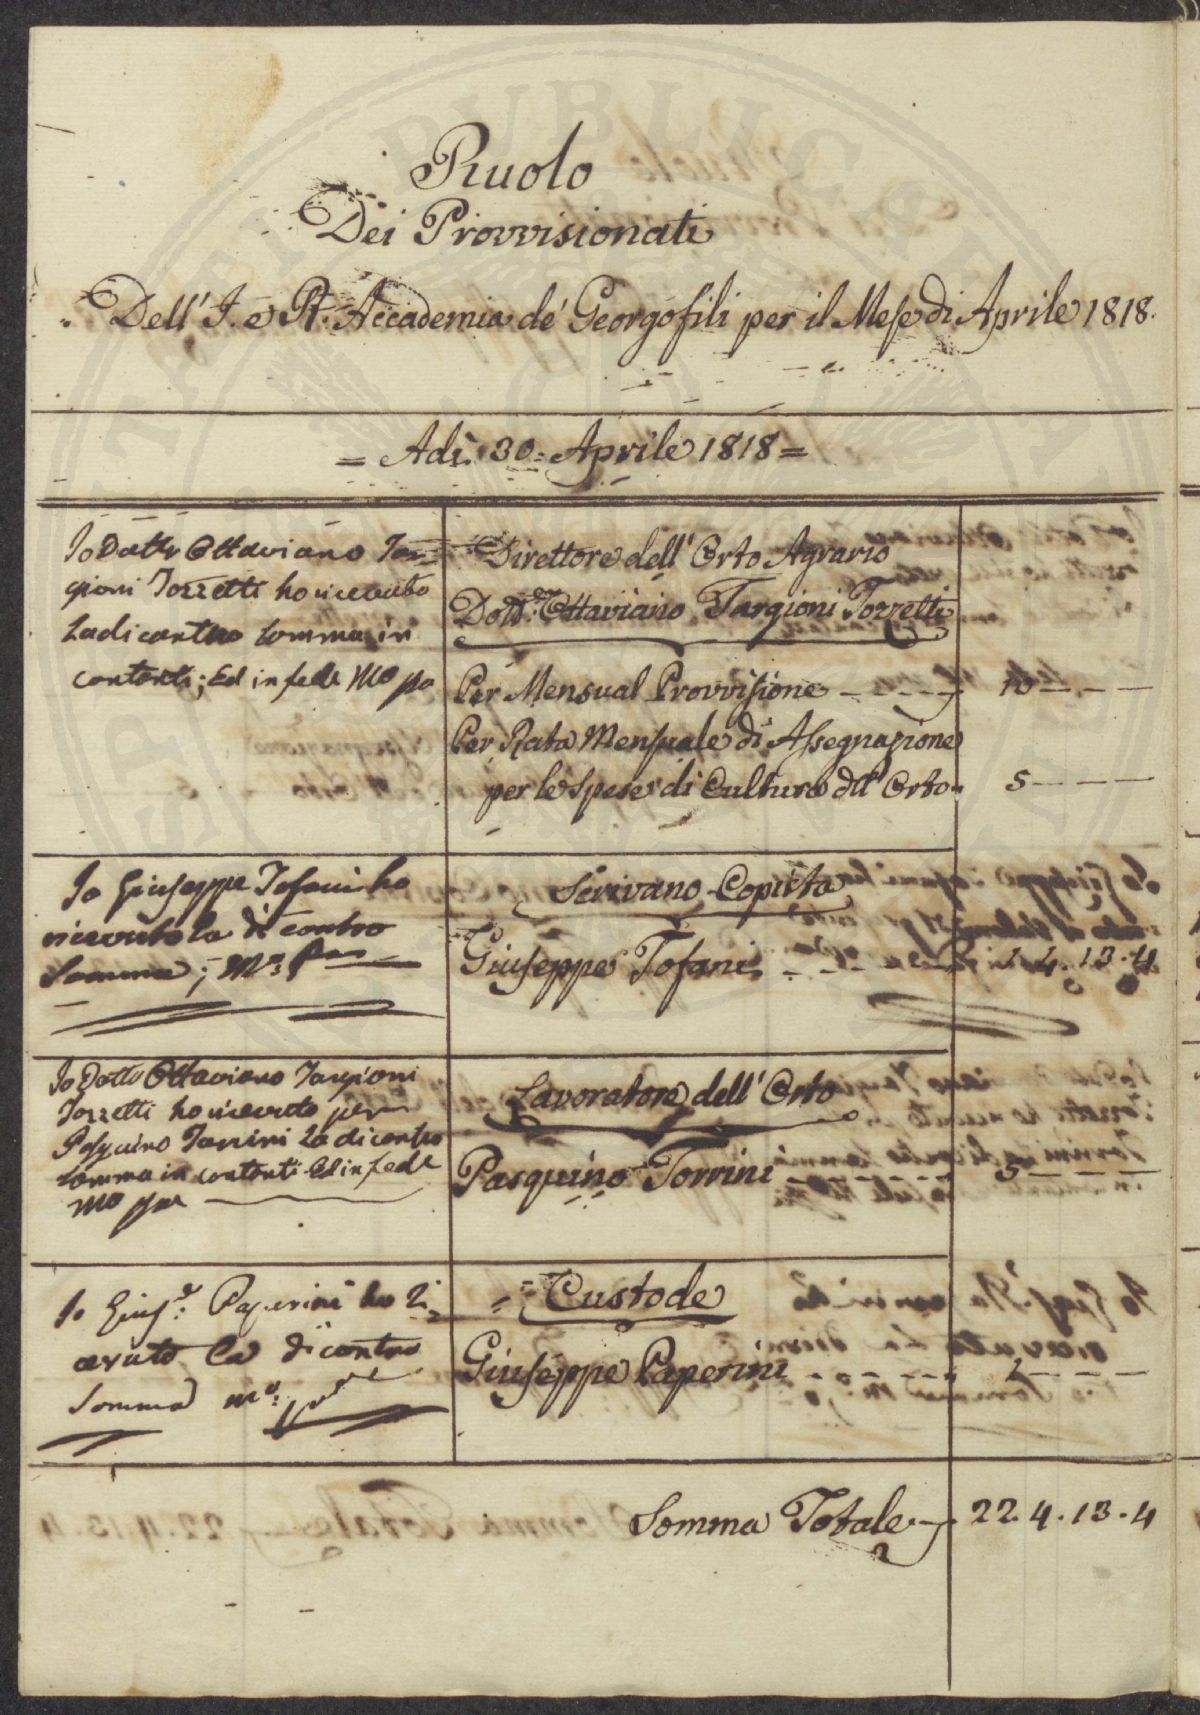 Ruolo
Dei Provvisionati
Dell' I. e R. Accademia de' Georgofili per il Mese di Aprile 1818.
= Adì. 30. Aprile 1818 =
Io Dottr Ottaviano Tar=
gioni Tozzetti ho ricevuto
La di contro somma in
contanti; Ed in fede Mo pa
Direttore dell' Orto Agrario
Dott.r Ottaviano Targioni Tozzetti
Per Mensual Provvisione 10
Per Rata Mensuale di Assegnazione
per le Spese di Cultura dell' Orto 5
Io Giuseppe Tofani ho
ricevuto la di contro
Somma; Mo. ppa
Scrivano Copista
Giuseppe Tofani 1.4.13.4
Io Dotto Ottaviano Targioni
Tozzetti ho ricevuto per
Pasquino Torrini La di contro
somma in contanti Ed in fede
Mo ppa
Lavoratore dell' Orto
Pasquino Torrini 5
Io Gius.e Paperini ho ri=
cevuto La di contro
Somma mo.
Custode
Giuseppe Paperini 1
Somma Totale 22.4.13.4